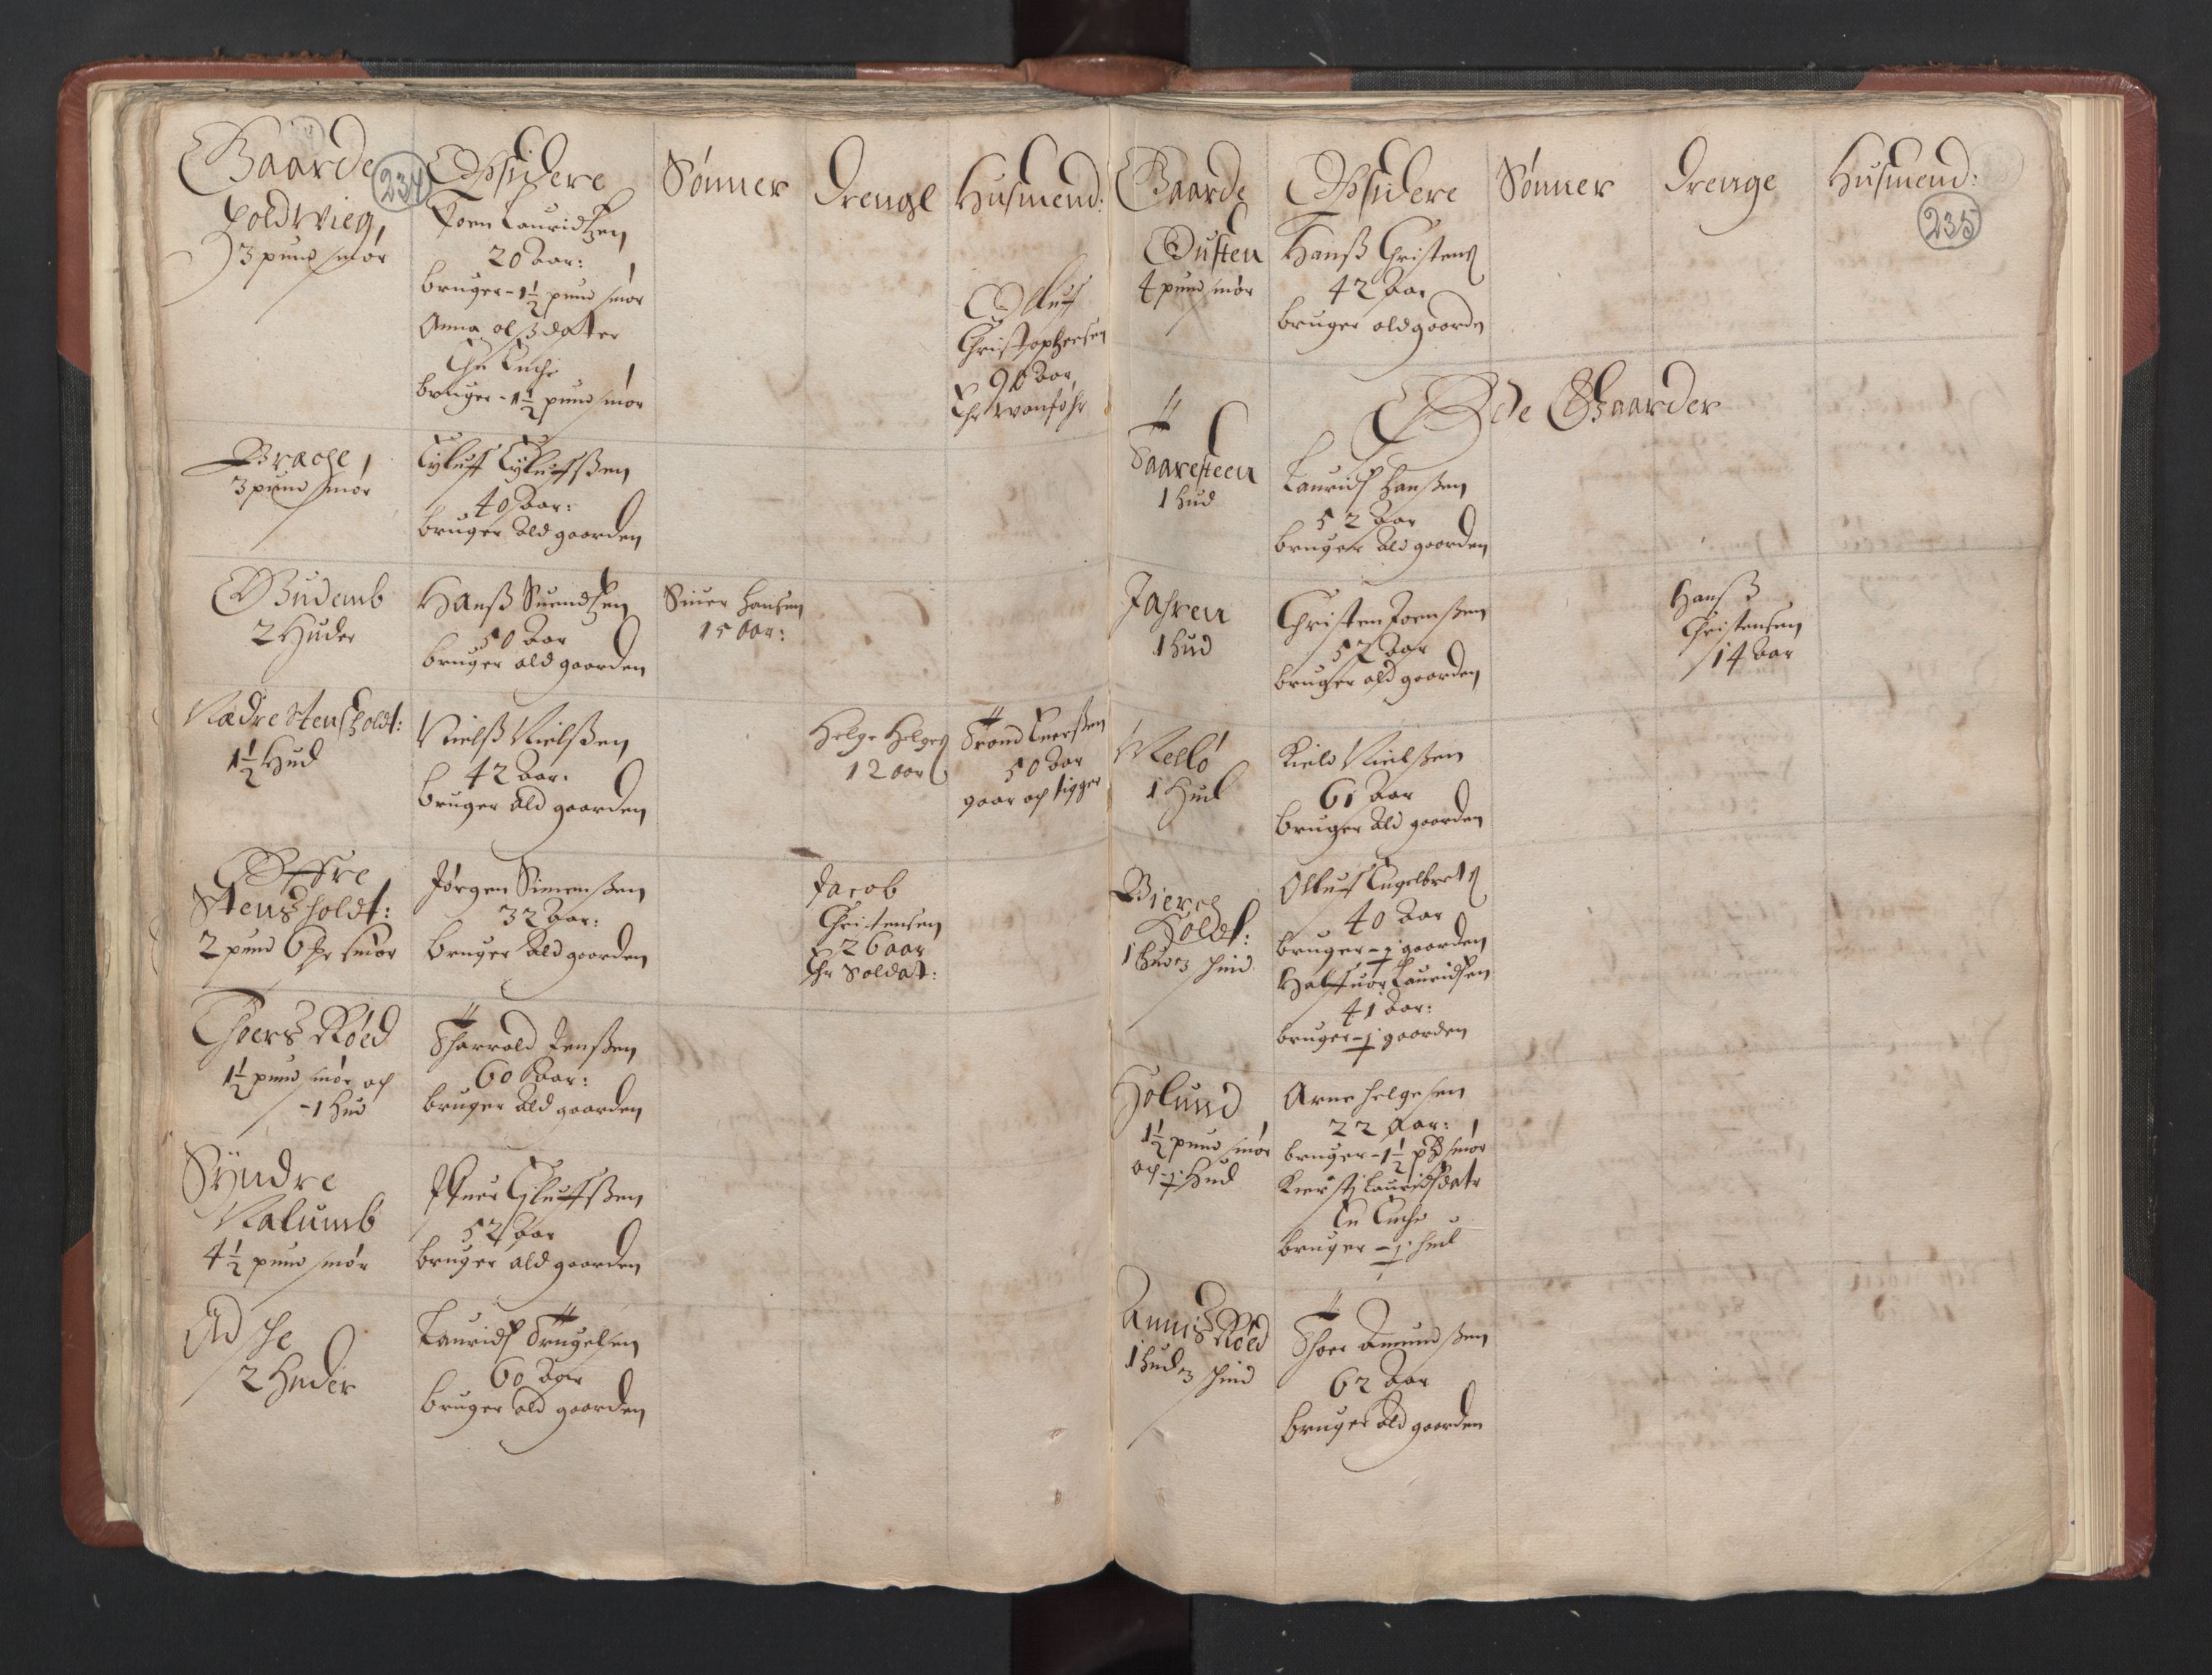 Gaarde
234
Opsidere
Sønner
Drenge
Husmend:
Holdtvieg,
3 pund smør
Joen Lauridtzen
20 Aar:
bruger - 1½ pund smør
Anna olßdatter
En Encke
bruger - 1½ pund smør
Olluff
Christophersen
90 Aar
Er vanfør
Brache,
3 pund smør
Gyluff Gyluffßen
40 Aar:
bruger ald gaarden
Gudemb
2 Huder
Hanß Suendßen
50 Aar
bruger ald gaarden
Siuer Hansen
15 Aar:
Nædre Stensholdt:
1½ Hud
Nielß Nielßen
42 Aar:
bruger ald gaarden
Helge Helges
12 aar
Trond Enerßen
50 Aar
gaar och tigger
Øffre
Stensholdt:
2 pund 6 smør
Jørgen Simenßen
32 Aar:
bruger ald gaarden
Jacob
Christensen
26 aar
Er Soldat:
Thors Røed
1½ pund smør och
- 1 Hud
Tharald Jenßen
60 Aar:
bruger ald gaarden
Syndre
Nalumb
4½ pund smør
Gluffßen
52 Aar
bruger ald gaarden
Aasche
2 Huder
Lauridtz Trugelsen
60 Aar
bruger ald gaarden
Gaarde
Opsidere
Sønner
Drenge
Husmend:
235
Ousten
4 pund smør
Hanß Christens
42 Aar
bruger ald gaarden
Øde Gaarder
Taaresteen
1 hud
Lauridtz Hanßen
52 Aar
bruger ald gaarden
Fahren
1 hud
Christen Joenßen
57 Aar
bruger ald gaarden
Hanß
Christensen
14 aar
Melló
1 Hud
Kield Nielßen
61 Aar
bruger ald gaarden
Bierge
Holdt:
1 hud 3 skind
Olluff Engelbrets
40 Aar
bruger - ½ gaarden
Halffuor Lauridsen
41 Aar:
bruger - ½ gaarden
Holund
1½ pund smør
och ½ Hud
Arne Helgesen
22 Aar:
bruger - 1½ pd smør
Kiersti Lauridsdatr
En Encke
bruger - ½ hud
Annis Røed
1 hud 3 skind
Thore Amundßen
62 Aar
bruger ald gaarden